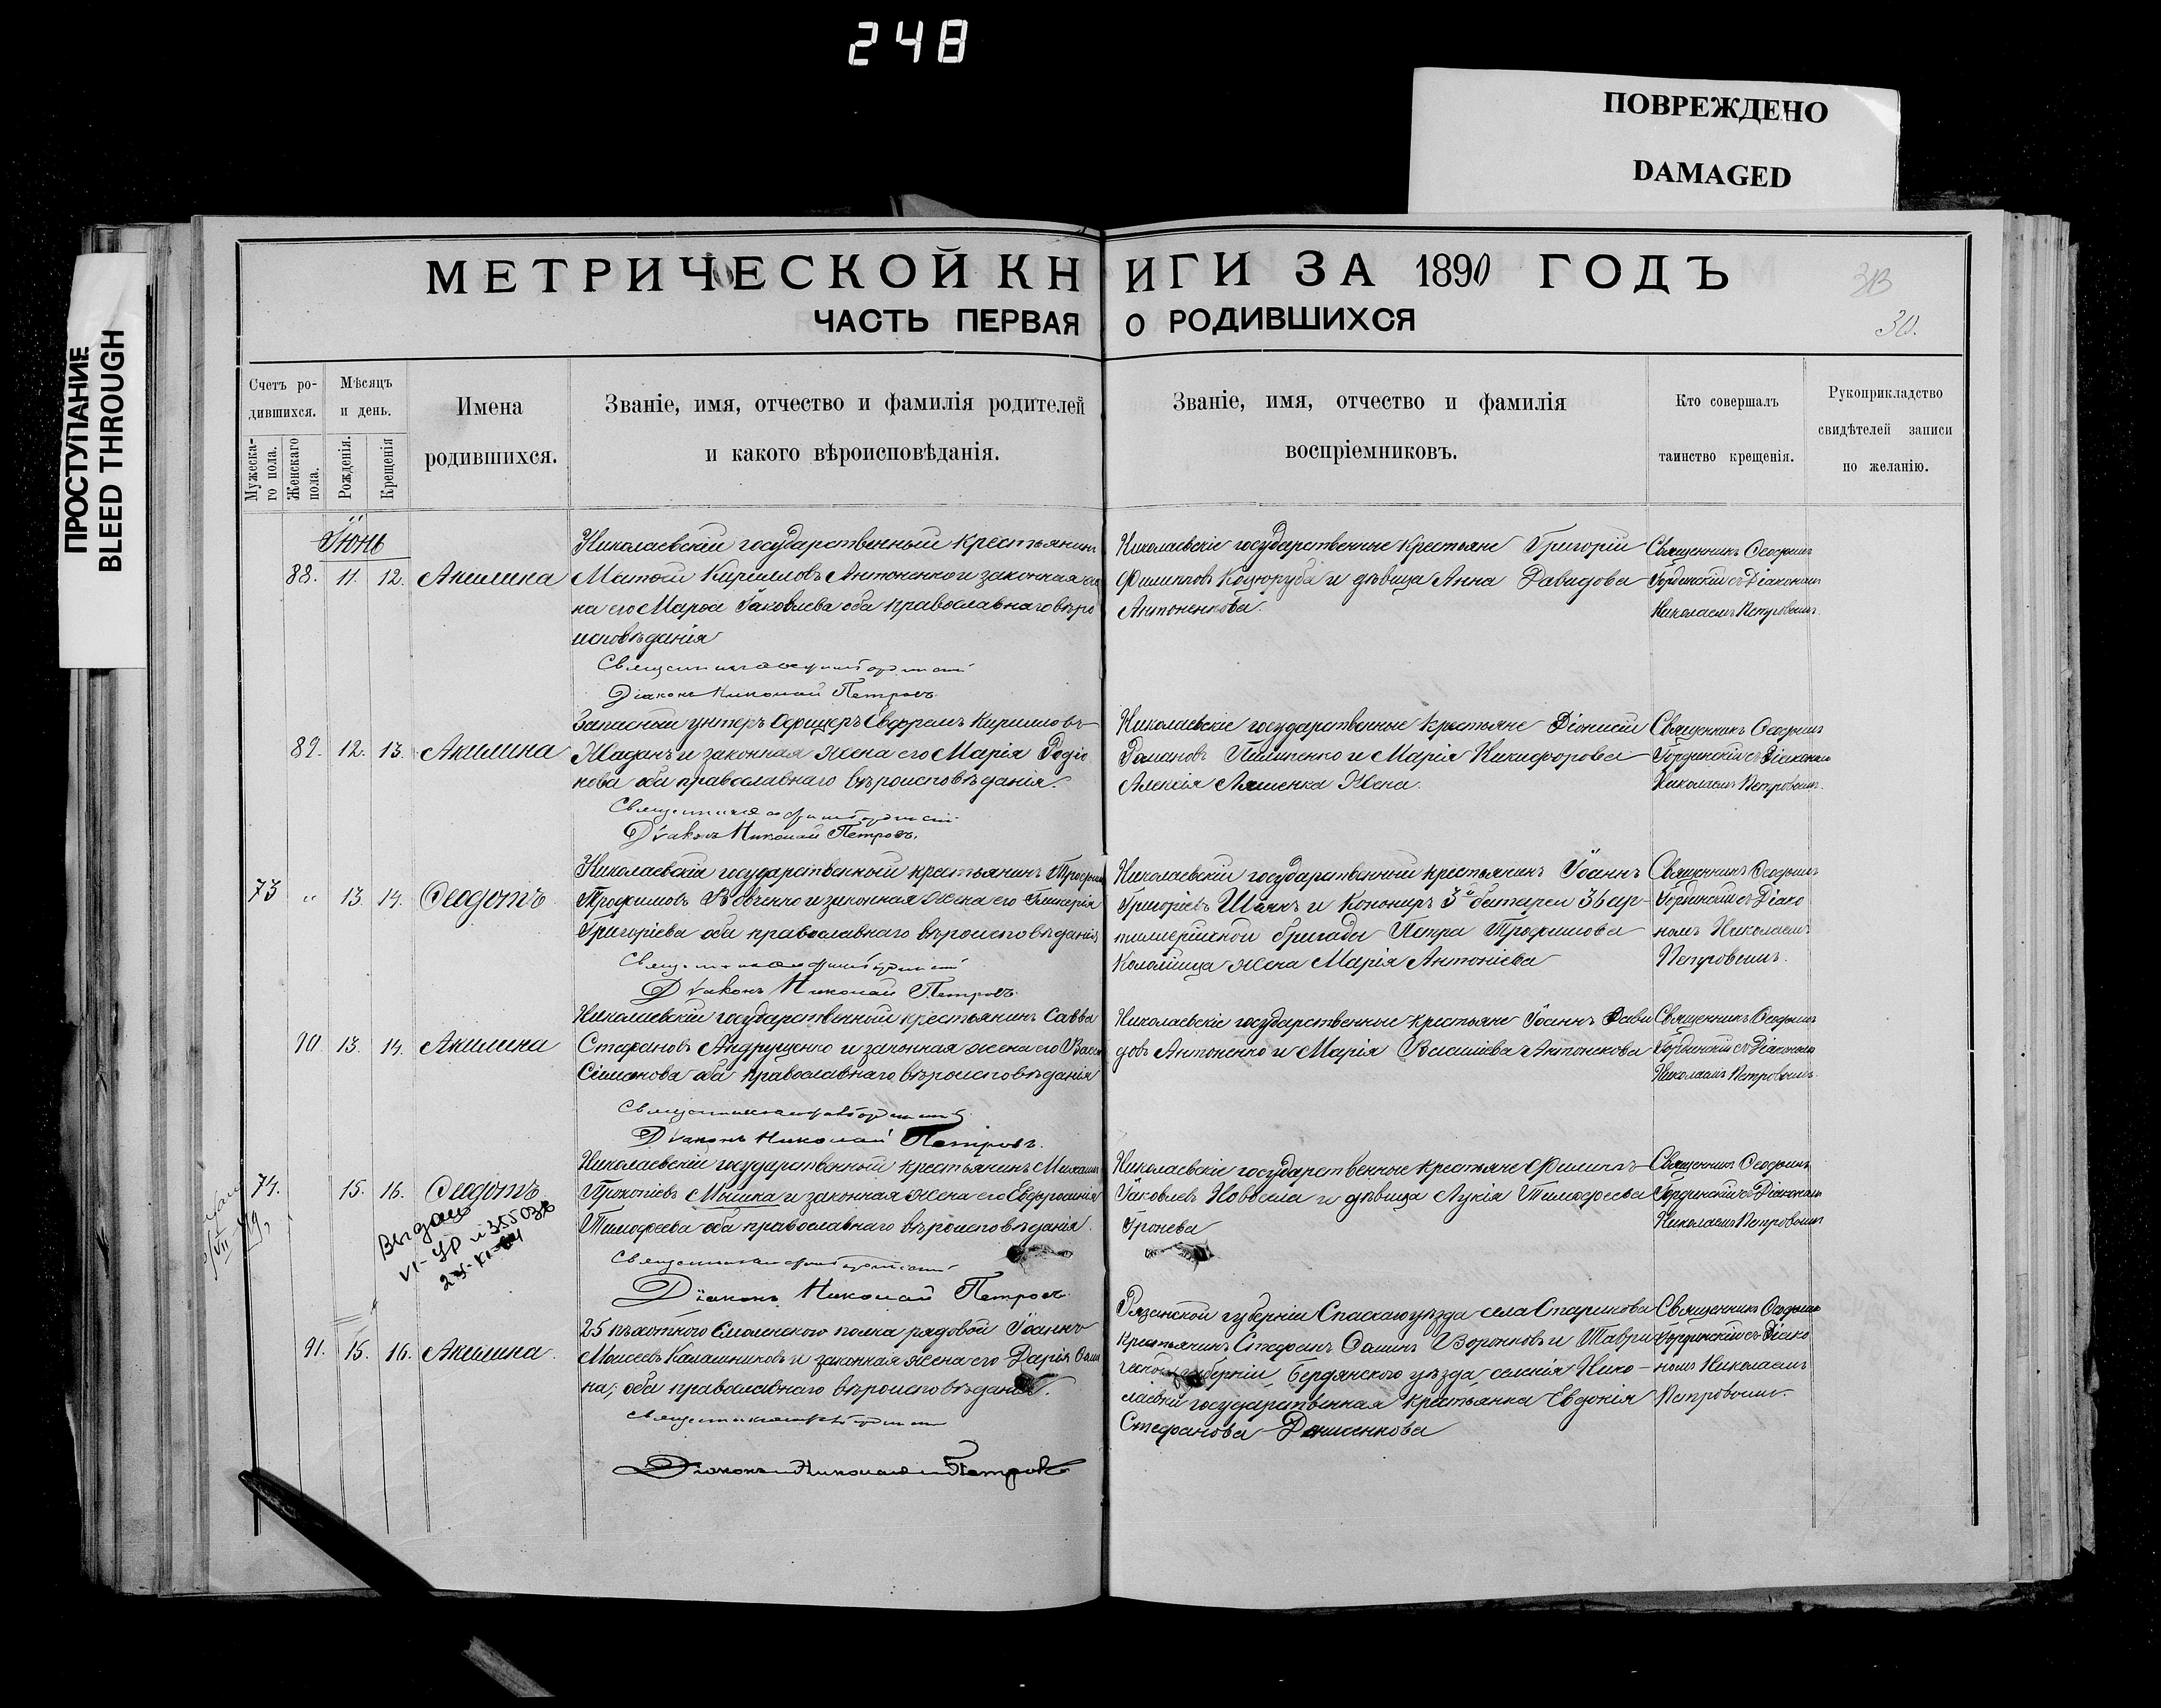 248
ПОВРЕЖДЕНО
DAMAGED
ПРОСТУПАНИЕ
BLEED THROUGH
МЕТРИЧЕСКОЙ КНИГИ ЗА 1890 ГОДЪ
ЧАСТЬ ПЕРВАЯ О РОДИВШИХСЯ
30.
Счетъ ро-
дившихся.
Мужеска-
го пола.
Женскаго
пола.
Мѣсяцъ
и день.
Рожденія.
Крещенія
Имена
родившихся.
Званіе, имя, отчество и фамилія родителей
и какого вѣроисповѣданія.
Званіе, имя, отчество и фамилія
воспріемниковъ.
Кто совершалъ
таинство крещенія.
Рукоприкладство
свидѣтелей записи
по желанію.
Іюнь
88. 11. 12. Акилина
Николаевскій государственный крестьянинъ
Матѳей Кирилловъ Антоненко и законная же
на его Марѳа Іаковлева оба православнаго вѣро
исповѣданія
Діаконъ Николай Петровъ.
Николаевскіе государственные крестьяне Григорій
Филипповъ Коцюруба и дѣвица Анна Давидова
Антоненкова.
Священникъ Ѳеодоръ
съ Діакономъ
Николаемъ Петровымъ.
89. 12. 13. Акилина
Запасный унтеръ офицеръ Евфремъ Кирилловъ
Жаданъ и законная жена его Марія Родіо
нова оба православнаго вѣроисповѣданія.
Діаконъ Николай Петровъ.
Николаевскіе государственные крестьяне Діонисій
Романовъ Пилипенко и Марія Никифорова
Алексія Ляшенка жена.
Священникъ
съ Діакономъ
Николаемъ Петровымъ.
73 " 13. 14. Ѳеодотъ
Николаевскій государственный крестьянинъ
Трофимовъ Вовченко и законная жена его Гликерія
Григоріева оба православнаго вѣроисповѣданія
Діаконъ Николай Петровъ.
Николаевскій государственный крестьянинъ Іоаннъ
Григоріевъ Шаякъ и Канониръ 3й батареи 36 ар-
тиллерійской бригады Петра Трофимова
Коломійца жена Марія Антоніева
Священникъ
съ Діако
номъ Николаемъ
Петровымъ.
90 13. 14. Акилина
Николаевскій государственный крестьянинъ Савва
Стефановъ Андрущенко и законная жена его Васса
Симонова оба православнаго вѣроисповѣданія
Діаконъ Николай Петровъ.
Николаевскіе государственные крестьяне Іоаннъ Дави
довъ Антоненко и Марія Василіева Антонекова
Священникъ
съ Діакономъ
Николаемъ Петровымъ.
74. 15. 16. Ѳеодотъ
Выдано
VI-УР № 355038
Николаевскій государственный крестьянинъ Михаилъ
Прокопіевъ Мышка и законная жена его Евфросинія
Тимофеева оба православнаго вѣроисповѣданія.
Діаконъ Николай Петровъ.
Николаевскіе государственные крестьяне Филиппъ
Іаковлевъ и дѣвица Лукія Тимофеева
Гронева
Священникъ
съ Діакономъ
Николаемъ Петровымъ
91. 15. 16. Акилина.
25 пѣхотного Смоленского полка рядовой Іоаннъ
Моисеевъ Калашниковъ и законная жена его Дарія Ѳоми
на, оба православнаго вѣроисповѣданія.
Діаконъ Николай Петровъ
Рязанской губерніи Спаскаго уѣзда села Старикова
крестьянинъ Стефанъ Ѳоминъ Воронковъ и Таври
ческой губерніи, Бердянского уѣзда селенія Нико-
лаевки государственная крестьянка Евдокія
Стефанова Денисенкова
Священникъ
съ Діако
номъ Николаемъ
Петровымъ.